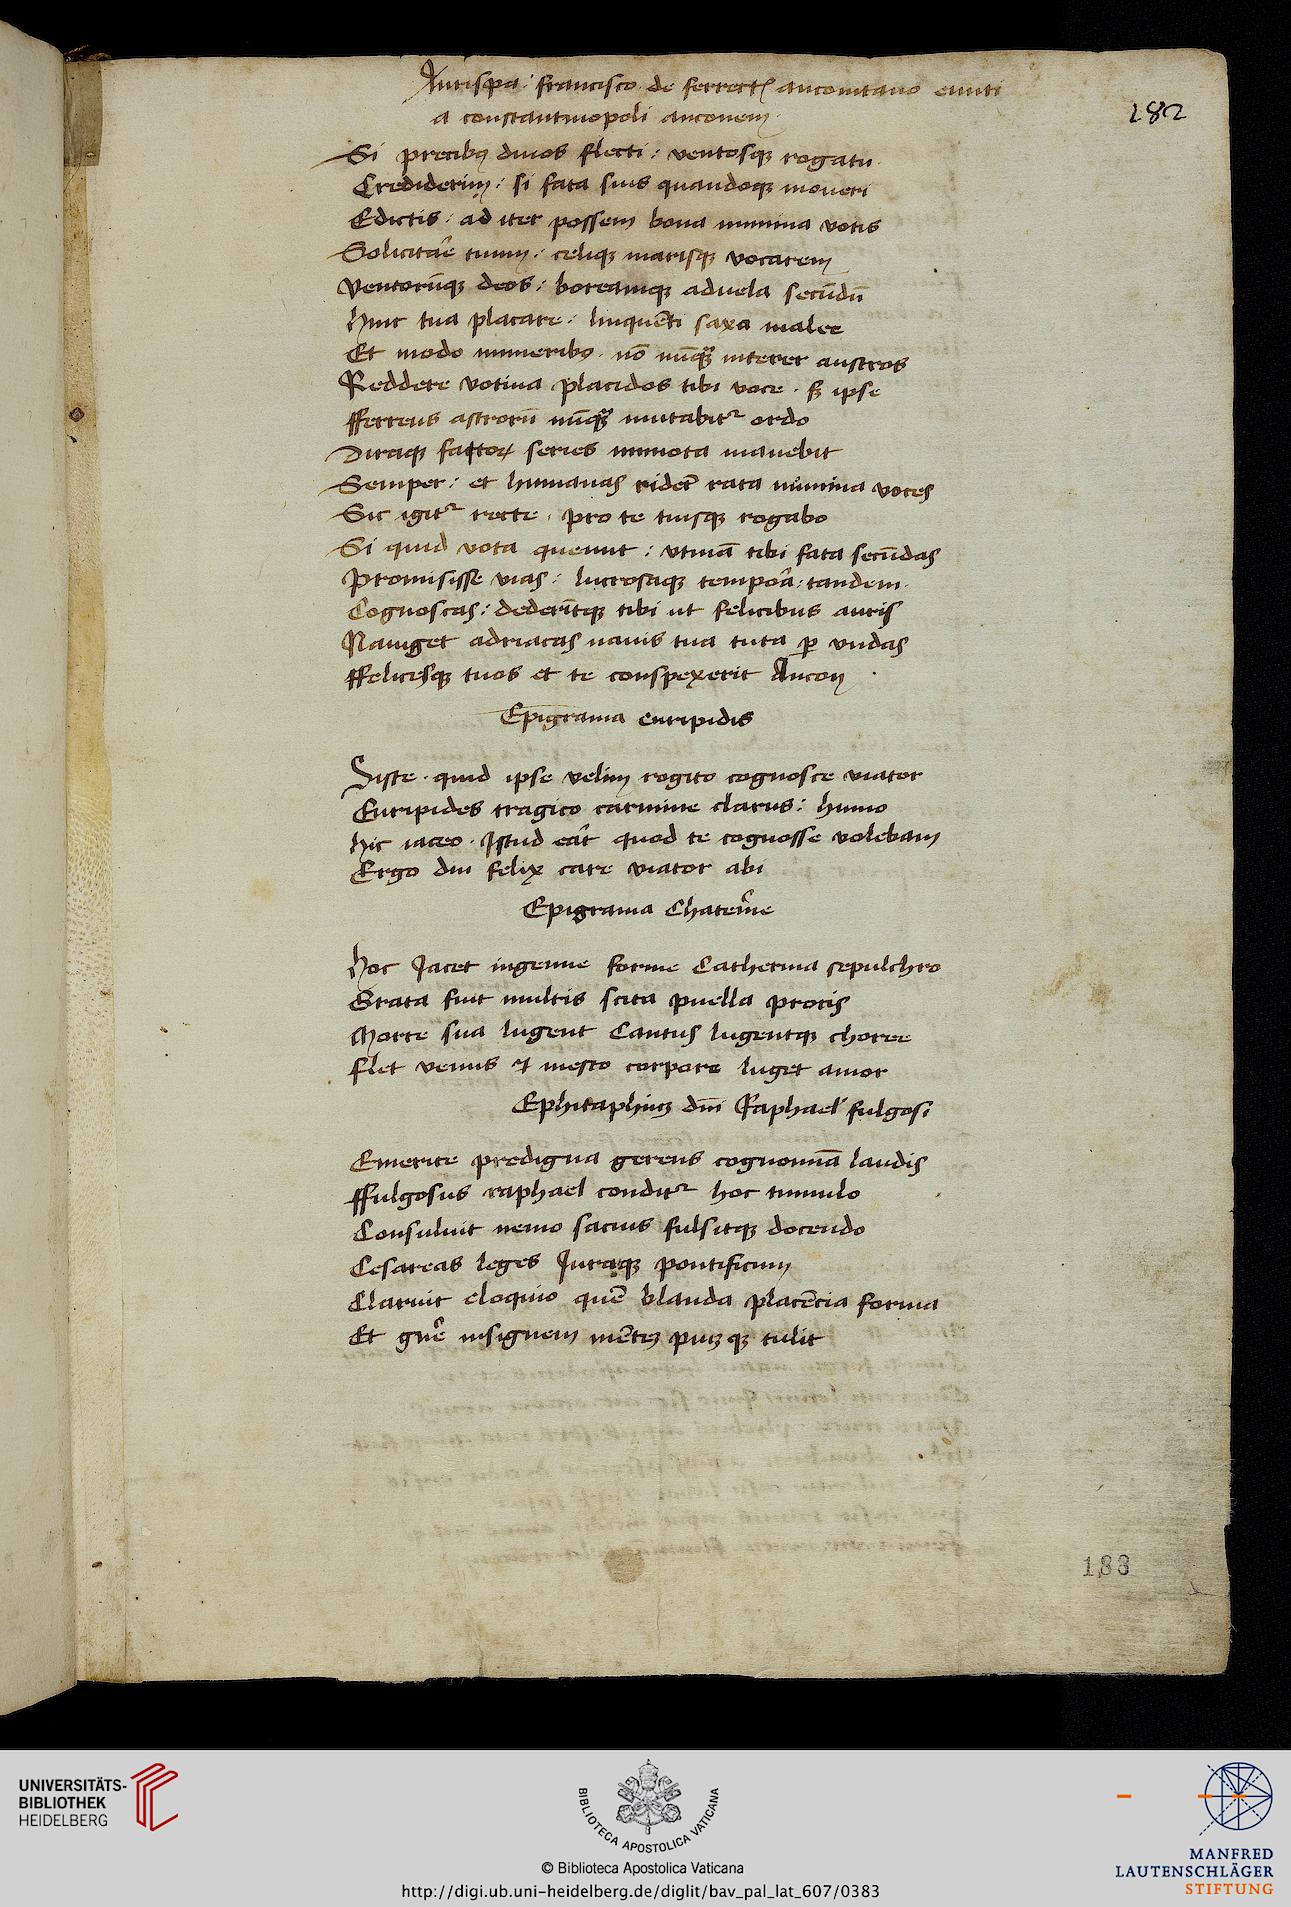 Aurispa: francisco de ferrect(is) anconitano eunti
182
a constantinopoli anconem
Si precib9 diuos flecti: ventosq3 rogatu
Crediderim: si fata suis quandoq3 moueri
Edictis: ad iter possem bona numina votis
Solicitar̄e tuum: celiq3 marisq3 vocarem
Ventorūq3 deos: boreamq3 aduela secūdū
Hinc tua placare: linquēti saxa malee
Et modo muneribo. nō nūq̄3 interer austros
Reddere votiua placidos tibi voce. s3 ipse
fferreus astrorū nūq̄3 mutabit͛ ordo
Diraq3 fattoꝝ series immota manebit
Semper: et humanas ridet͛ rata numina voces
Sic igit͛ recte. pro te tuisq3 rogabo
Si quid vota queunt: vtinā tibi fata secūdas
Promisisse vias: lucrosaq3 tempor̄a: tandem
Cognoscas: dederītq3 tibi ut felicibus auris
Nauiget adriacas nauis tua tuta ꝑ vndas
ffelicesq3 tuos et te conspexerit Ancon
Epigrama euripidis
Siste. quid ipse velim rogito cognosce viator
Euripides tragico carmine clarus: humo
Hic iaceo. Istud er̄at quod te cognosse volebam
Ergo diu felix care viator abi
Epigrama Chater̄ine
Hoc Jacet ingenue forme Catherina sepulchro
Grata fuit multis scita puella procis
Morte sua lugent Cantus lugentq3 choree
Flet venus ⁊ mesto corpore luget amor
Ephitaphiu3 dn̄i Raphael fulgosi
Emerite predigna gerens cognomīa laudis
ffulgosus raphael condit͛ hoc tumulo
Consuluit nemo sacius fulsitq3 docendo
Cesareas leges Juraq3 pontificum
Claruit eloquio quē blanda placēcia forma
Et gn̄e insignem mēte3 q3 tulit
188
UNIVERSITÄTS-
BIBLIOTHEK
HEIDELBERG
BIBLIOTECA APOSTOLICA VATICANA
© Biblioteca Apostolica Vaticana
http://digi.ub.uni-heidelberg.de/diglit/bav_pal_lat_607/0383
MANFRED
LAUTENSCHLÄGER
STIFTUNG